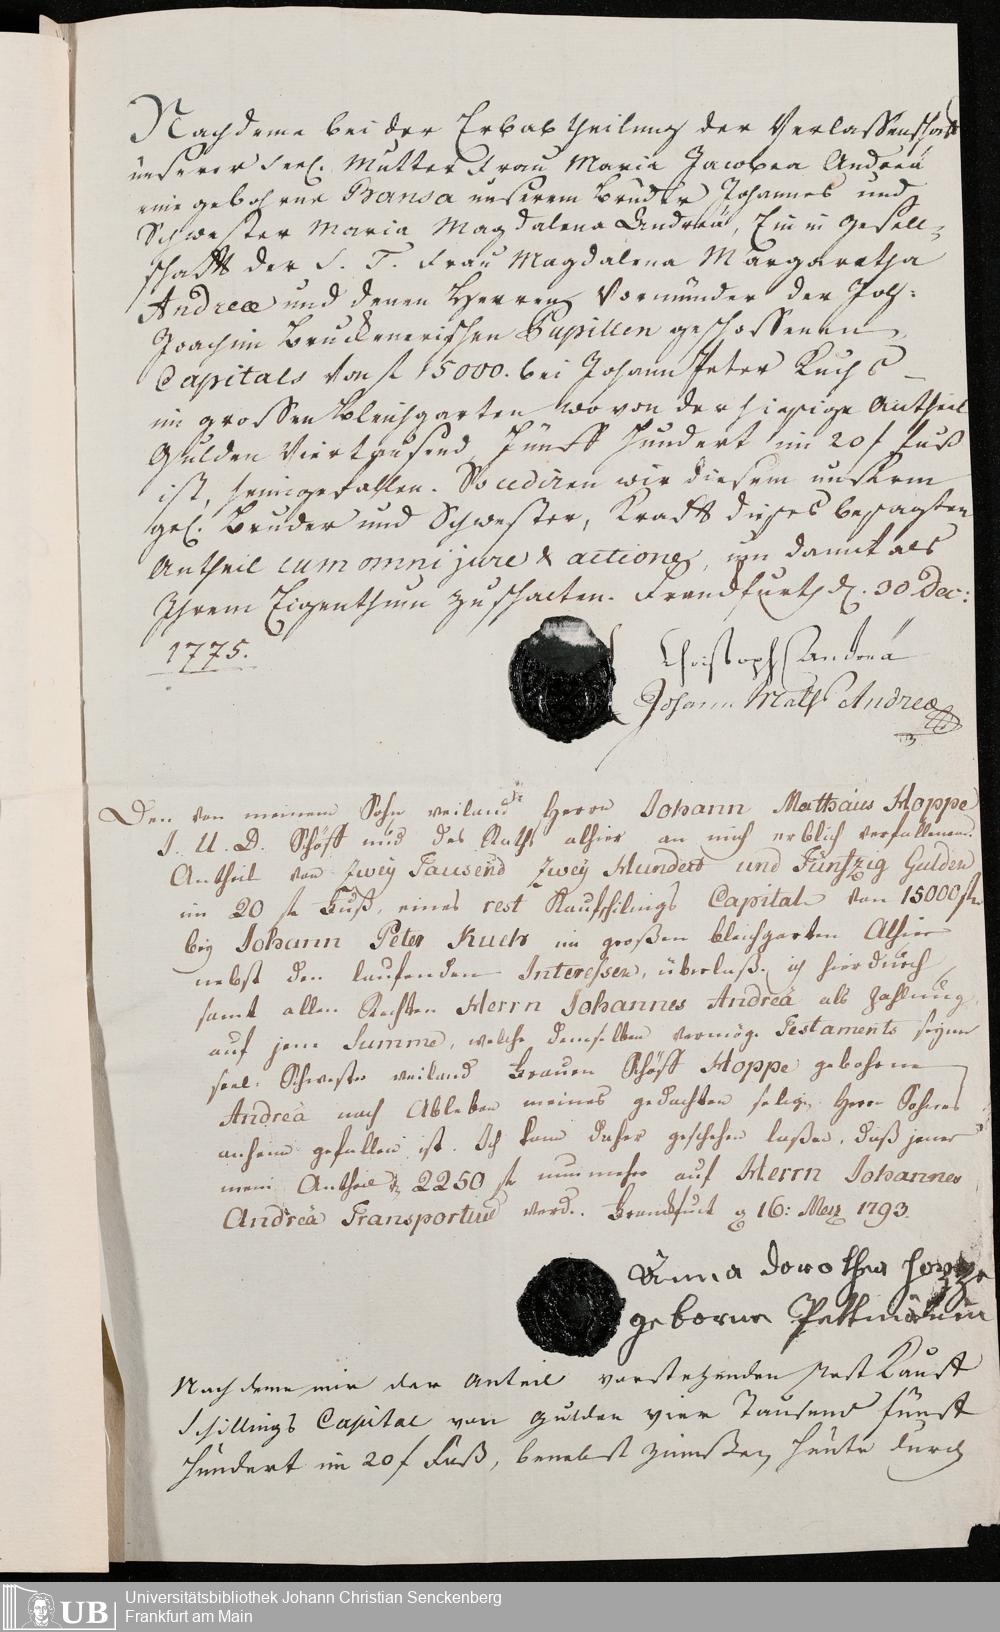 Nachdeme bei der Erbabtheilung der Verlassenschafft
unserer Seel. Mutter Frau Maria Jacobea Andreä
eine gebohrne Bansa unserem Bruder Johannes und
Schwester Maria Magdalena Andreä, Ein in Gesell-
schafft der S. T. Frau Magdalena Margaretha
Andreæ und denen Herren Vormünder der Joh:
Joachim Bruckenerischen Pupillen geschossenen
Capitals von fl 15000. bei Johann Peter Kuchs
im grossen Bleichgarten wovon der hiesige Antheil
Gulden Viertausend Fünff Hundert im 20 f Fuß
ist, heimgefallen. So cediren wir diesem unserm
gel. Bruder und Schwester, Krafft dieses besagten
Antheil cum omni jure & actione, um damit als
Ihrem Eigenthum zu schalten. Franckfurth d. 30 Dec:
1775.
Christoph Andreä
Johann Math Andreæ
Den von meinem Sohn weiland Herrn Johann Matthäus Hoppe
J. U. D. Schöff und des Raths alhier an mich erblich verfallenen
Antheil von Zwey Tausend Zwey Hundert und Fünfzig Gulden
im 20 fl Fuß, eines rest Kaufschillings Capital von 15000 fl
bey Johann Peter Kuchs im großen bleichgarten Alhier
nebst den laufenden Interessen, überlaß ich hierdurch
samt allen Rechten Herrn Johannes Andreä als Zahlung
auf jene Summe, welche demselben vermög Testaments seyner
seel. Schwester weiland Frauen Schöff Hoppe gebohrne
Andreä nach Ableben meines gedachten selig. Herrn Sohnes
anheim gefallen ist. Ich kann daher geschehen laßen, daß jener
mein Antheil 2250 fl nunmehr auf Herrn Johannes
Andreä Transportirt werd. Franckfurt 16: Merz 1793.
Anna Dorothea Hoppe
geborne Pettmännin
Nachdeme mir der Anteil vorstehenden Rest Kauff
Schillings Capital von Gulden vier Tausend fünff
Hundert im 20 f Fuß, benebst Zinnßen, heute durch
UB
Universitätsbibliothek Johann Christian Senckenberg
Frankfurt am Main